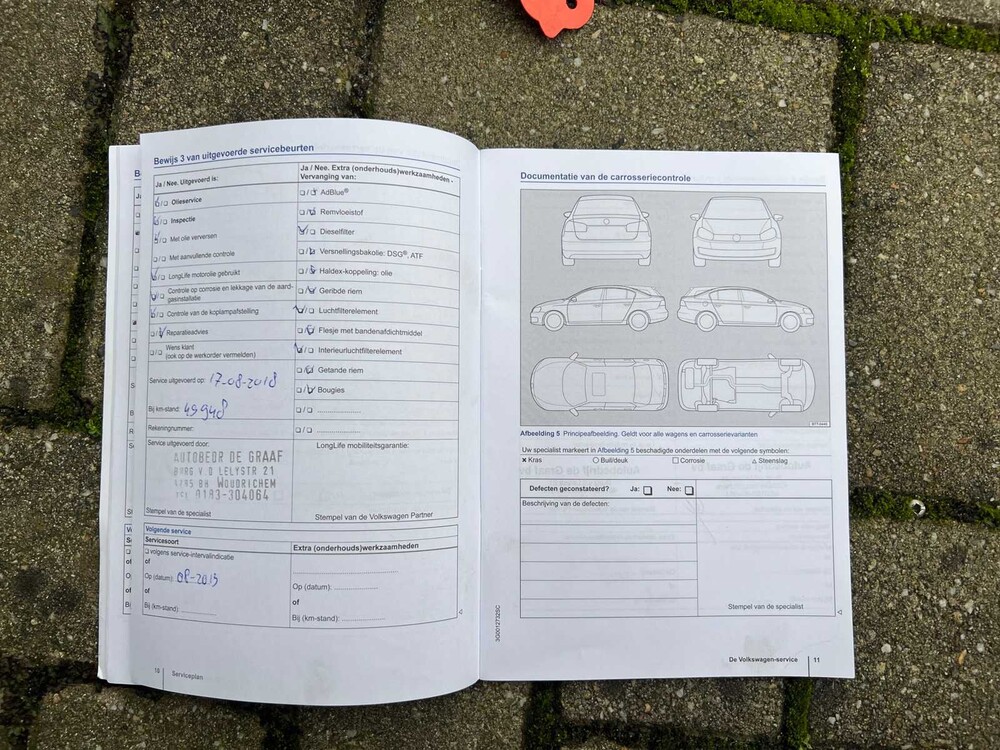 Bewijs 3 van uitgevoerde servicebeurten
Ja / Nee. Uitgevoerd is:
Olieservice
Inspectie
Met olie verversen
Met aanvullende controle
LongLife motorolie gebruikt
Controle op corrosie en lekkage van de aard-
gasinstallatie
Controle van de koplampafstelling
Reparatieadvies
Wens klant
(ook op de werkorder vermelden)
Service uitgevoerd op: 17-08-2018
Bij km-stand: 49948
Rekeningnummer:
Service uitgevoerd door:
AUTOBEDR DE GRAAF
BURG V D LELYSTR 21
4285 BH WOUDRICHEM
TEL 0183-304064
Stempel van de specialist
Ja / Nee. Extra (onderhouds)werkzaamheden -
Vervanging van:
AdBlue®
Remvloeistof
Dieselfilter
Versnellingsbakolie: DSG®, ATF
Haldex-koppeling: olie
Geribde riem
Luchtfilterelement
Flesje met bandenafdichtmiddel
Interieurluchtfilterelement
Getande riem
Bougies
LongLife mobiliteitsgarantie:
Stempel van de Volkswagen Partner
Volgende service
Servicesoort
volgens service-intervalindicatie
of
Op (datum): 08-2019
of
Bij (km-stand):
Extra (onderhouds)werkzaamheden
Op (datum):
of
Bij (km-stand):
Serviceplan
Documentatie van de carrosseriecontrole
Afbeelding 5 Principeafbeelding. Geldt voor alle wagens en carrosserievarianten
Uw specialist markeert in Afbeelding 5 beschadigde onderdelen met de volgende symbolen:
Kras Buil/deuk Corrosie Steenslag
Defecten geconstateerd? Ja: Nee:
Beschrijving van de defecten:
Stempel van de specialist
3G0012732SC
De Volkswagen-service 11